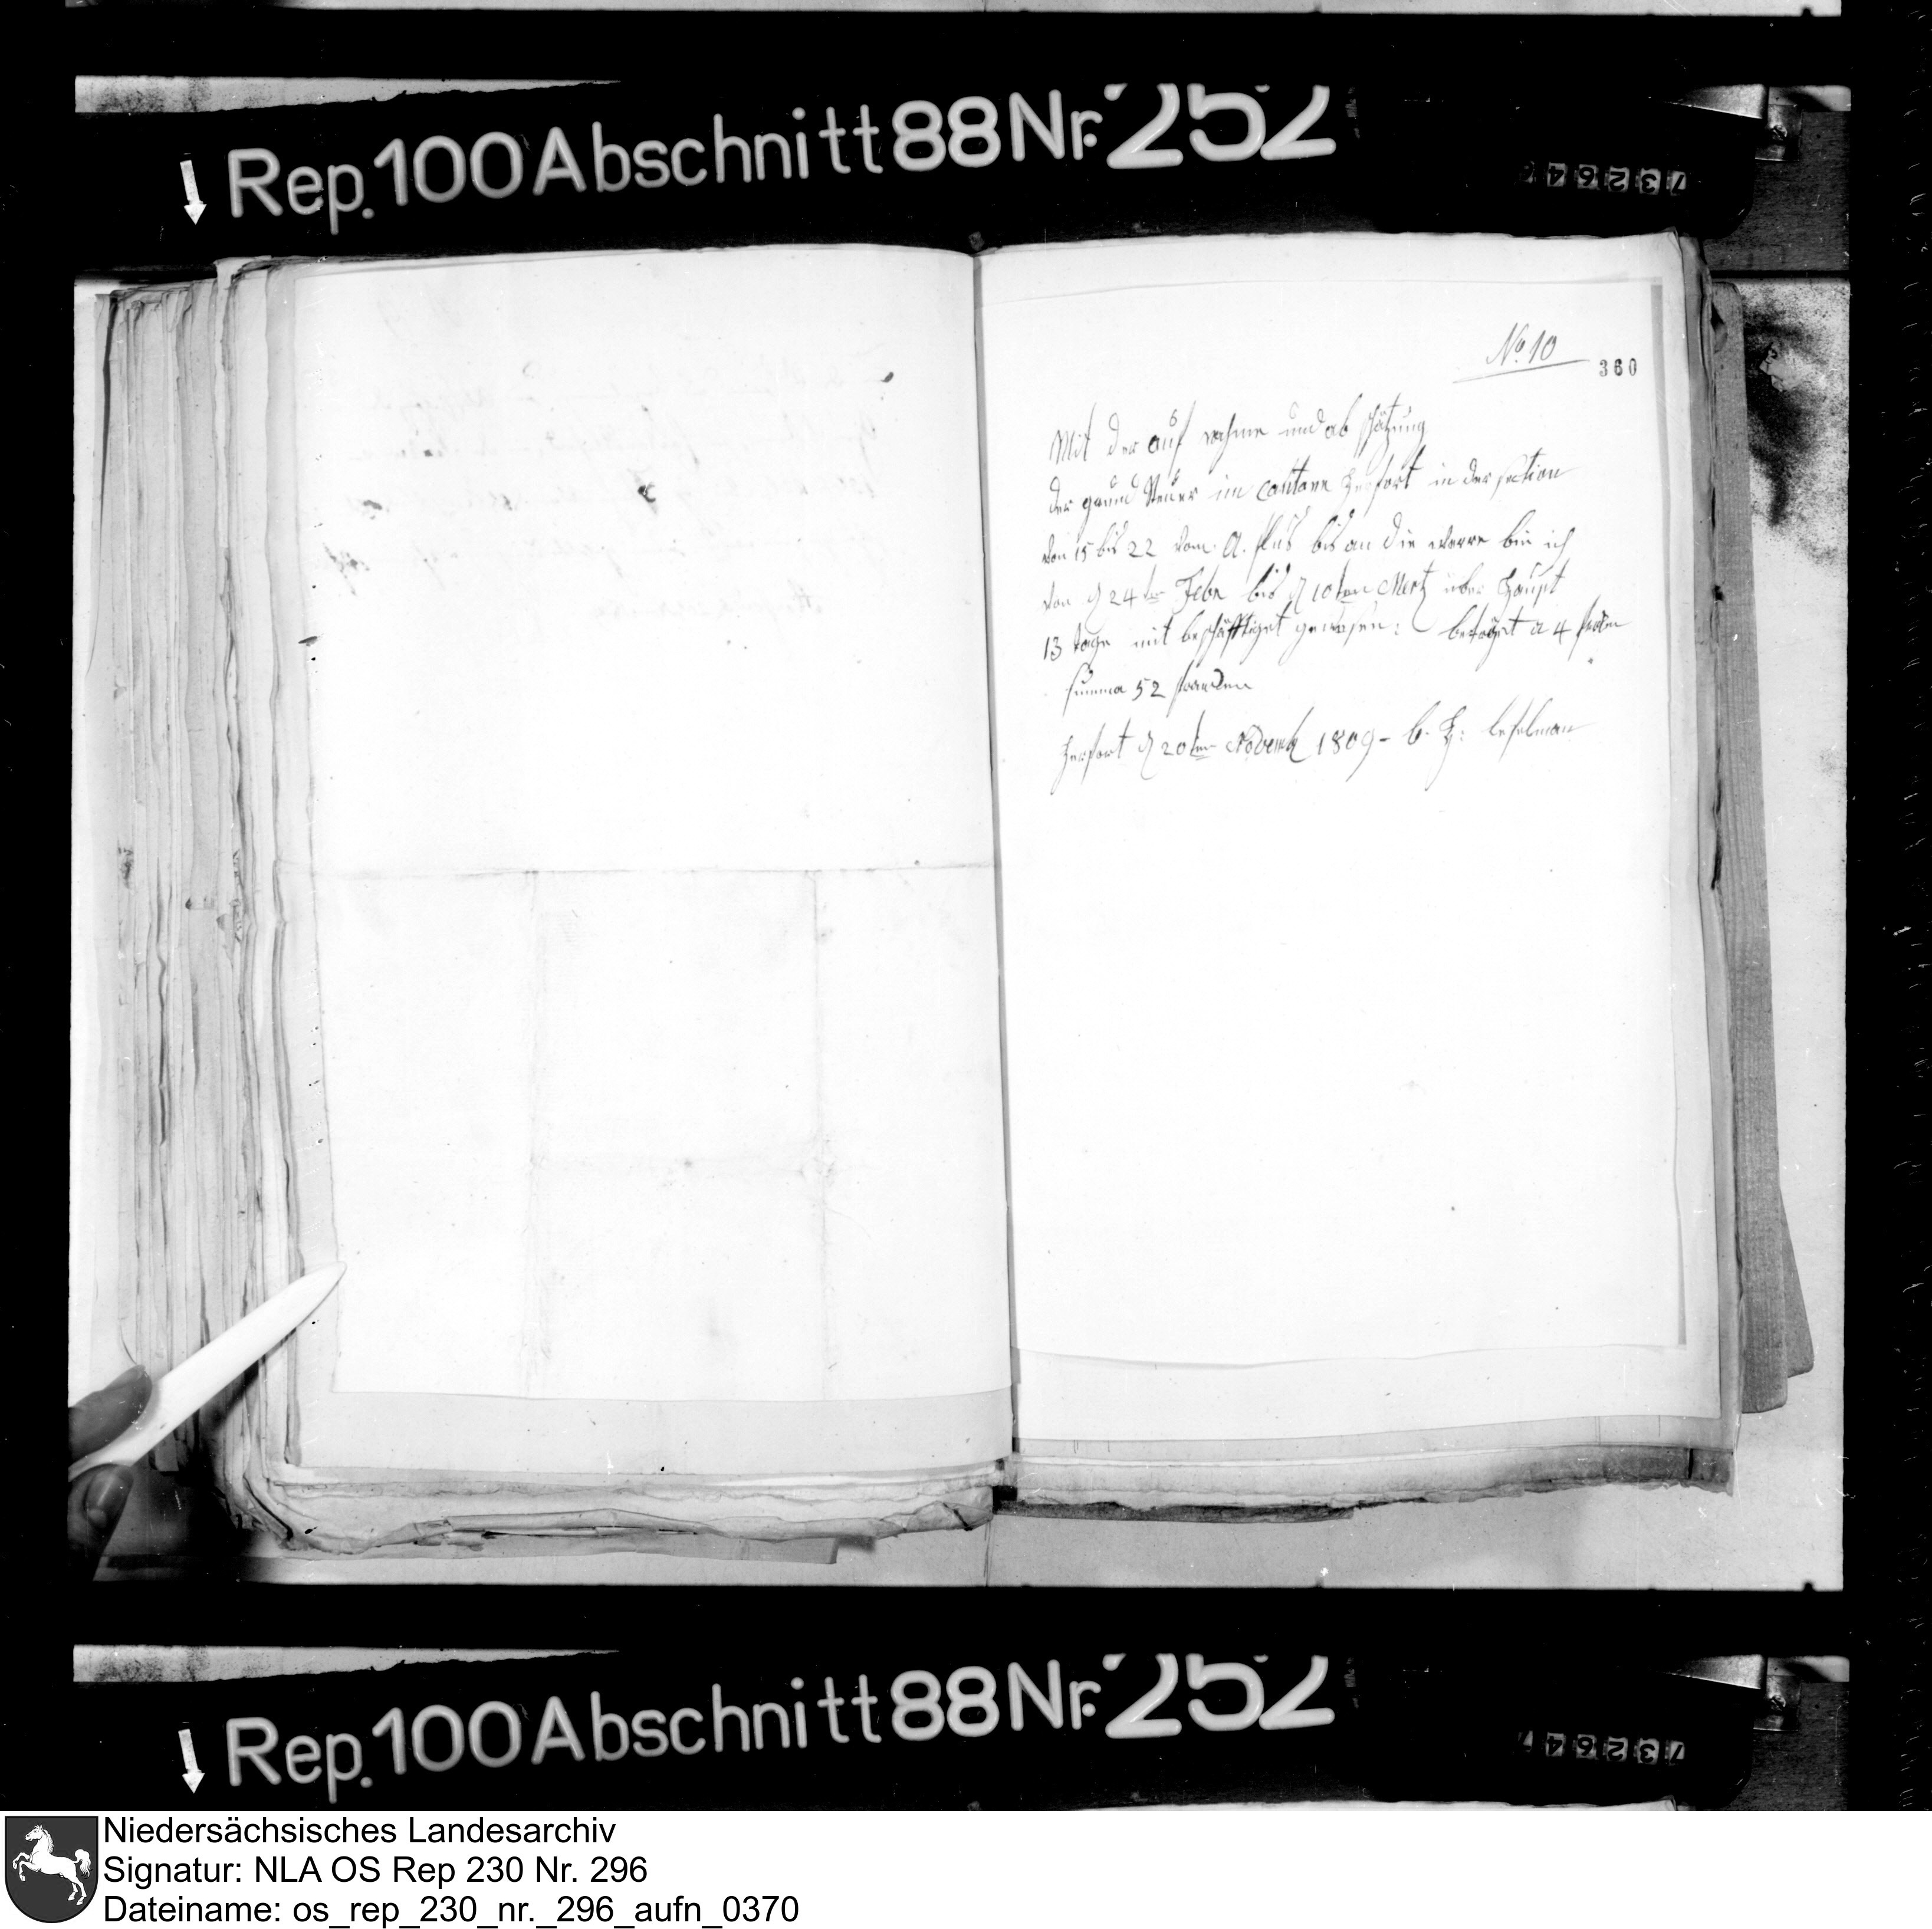 Rep. 100 Abschnitt 88 Nr. 252
No. 10
360
Mit der auf nahme und ab schätzung
der grund Steuer im cantonn Herfort in der section
von 15 bis 22 vom A. flus bis an die werre bin ich
von d 24ten Febr bis d 10ten Mertz über Haupt
13 tage mit beschäfftiget gewesen: betraegt a 4
summa 52
Herfort d 20ten Novemb 1809 -
Rep. 100 Abschnitt 88 Nr. 252
Niedersächsisches Landesarchiv
Signatur: NLA OS Rep 230 Nr. 296
Dateiname: os_rep_230_nr._296_aufn_0370